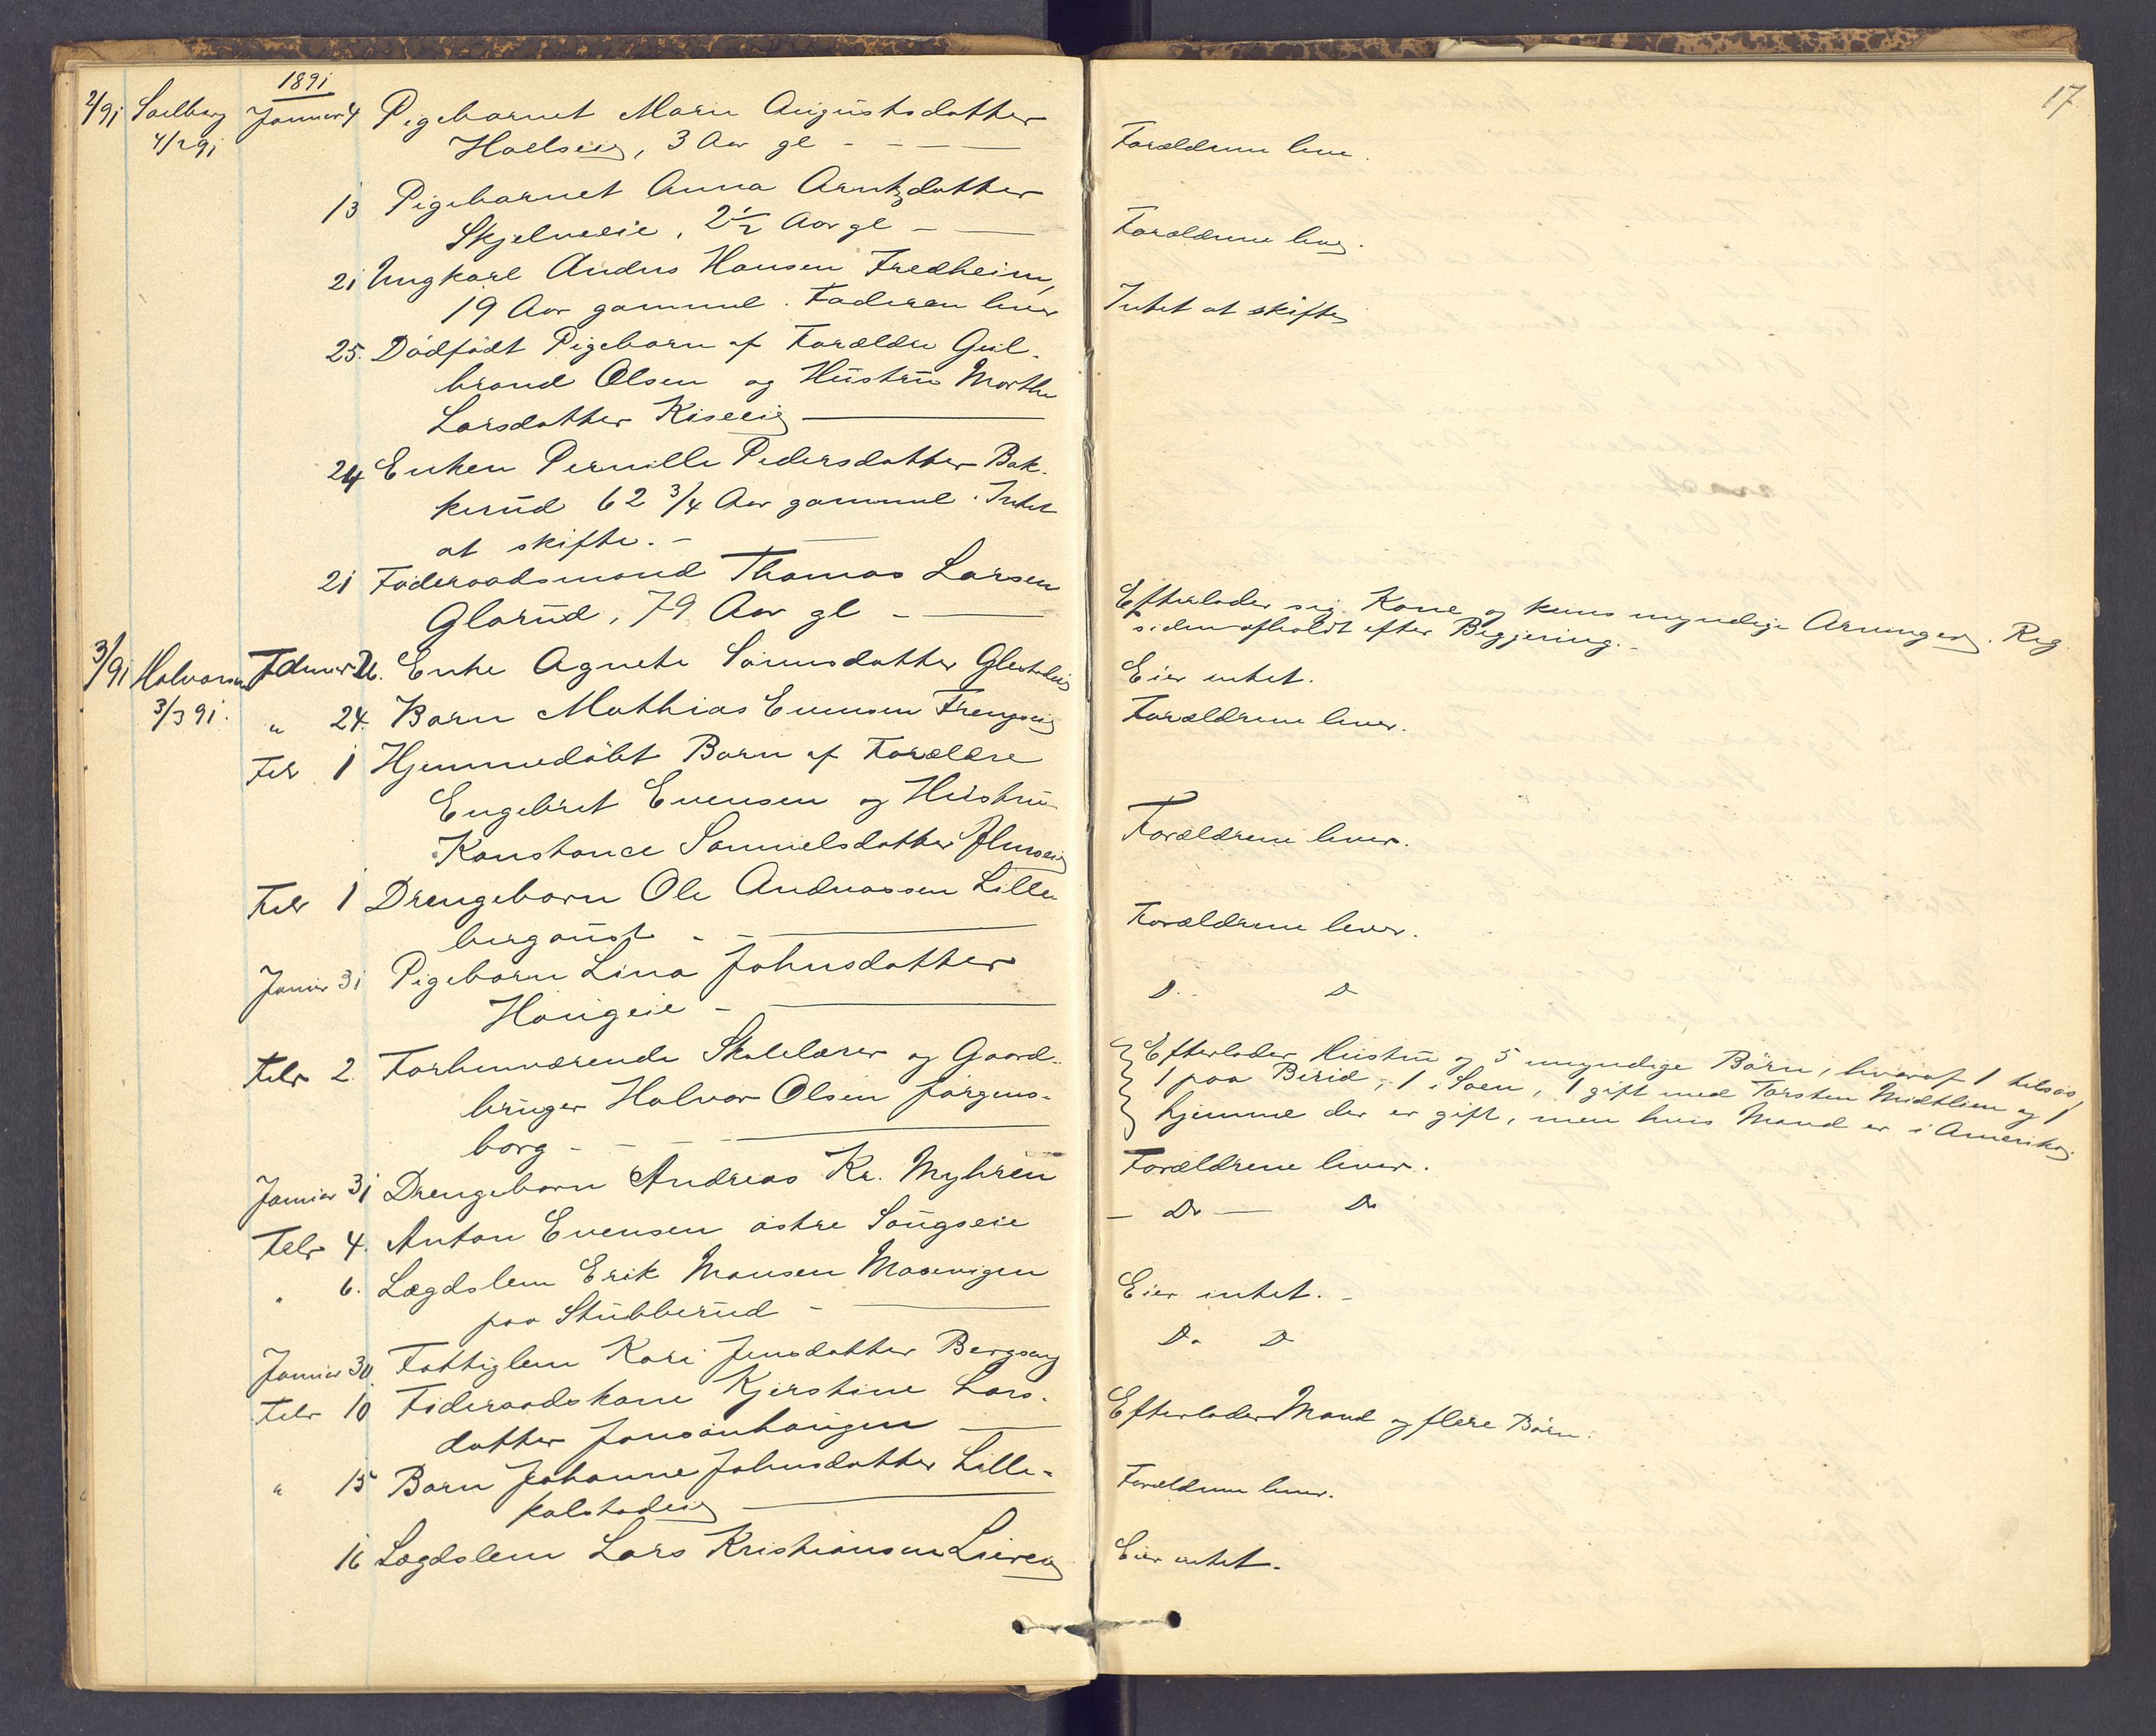 17
1891
2/91 Saelberg Januar 4 Pigebarnet Marie Augustsdatter
4/2 91 Hoelseie, 3 Aar gl - - - Forældrene leve.
13 Pigebarnet Anna Arntzdatter
Skjelneeie, 2½ Aar gl - Forældrene leve.
21 Ungkarl Andres Hansen Fredheim,
19 Aar gammel. Faderen lever Intet at skifte
25. Dødfødt Pigebarn af Forældre Gul-
brand Olsen og Hustru Marthe
Larsdatter Kiseeie
24 Enken Pernille Pedersdatter Bak-
kerud 62 3/4 Aar gammel. Intet
at skifte. -
21 Føderaadsmand Thomas Larsen
Glarud, 79 Aar gl - Efterlader sig Kone og kuns myndige Arvinger. Reg
siden afholdt efter Begjering. -
3/91 Halvorsen Februar 26. Enke Agnete Larsdatter Eier intet.
3/3 91. " 24. Barn Mathias Evensen Forældrene lever.
Febr 1 Hjemmedøbt Barn af Forældre
Engebret Evensen og Hustru
Konstance Samuelsdatter Forældrene lever.
Febr 1 Drengebarn Ole Andreassen Lille
bergaust - - Forældrene lever.
Januar 31 Pigebarn Lina Johnsdatter
Haugeie - D. D
Febr 2. Forhenværende Skolelærer og Gaard-
bruger Halvor Olsen Jørgens-
borg - - - -
Efterlader Hustru og 5 myndige Børn, hvoraf 1 tilsøs,
1 paa Birid, 1 i Soen, 1 gift med Torsten Midtlien og 1
hjemme der er gift, men hvis Mand er i Amerika.
Januar 31 Drengebarn Andreas Kr. Myhren Forældrene lever.
Febr 4. Anton Evensen østre Saugseie - Do - Do
" 6. Lægdslem Erik Mansen
paa Stubberud - Eier intet. -
Januar 30. Fattiglem Kari Jensdatter Bergseng Do D
Febr 10 Føderaadskone Kjerstine Lars-
datter Jonsonhaugen Efterlader Mand og flere Børn.
" 15 Barn Johanne Johnsdatter Lille-
kolstadeie Forældrene lever.
16 Lægdslem Lars Kristiansen Eier intet.